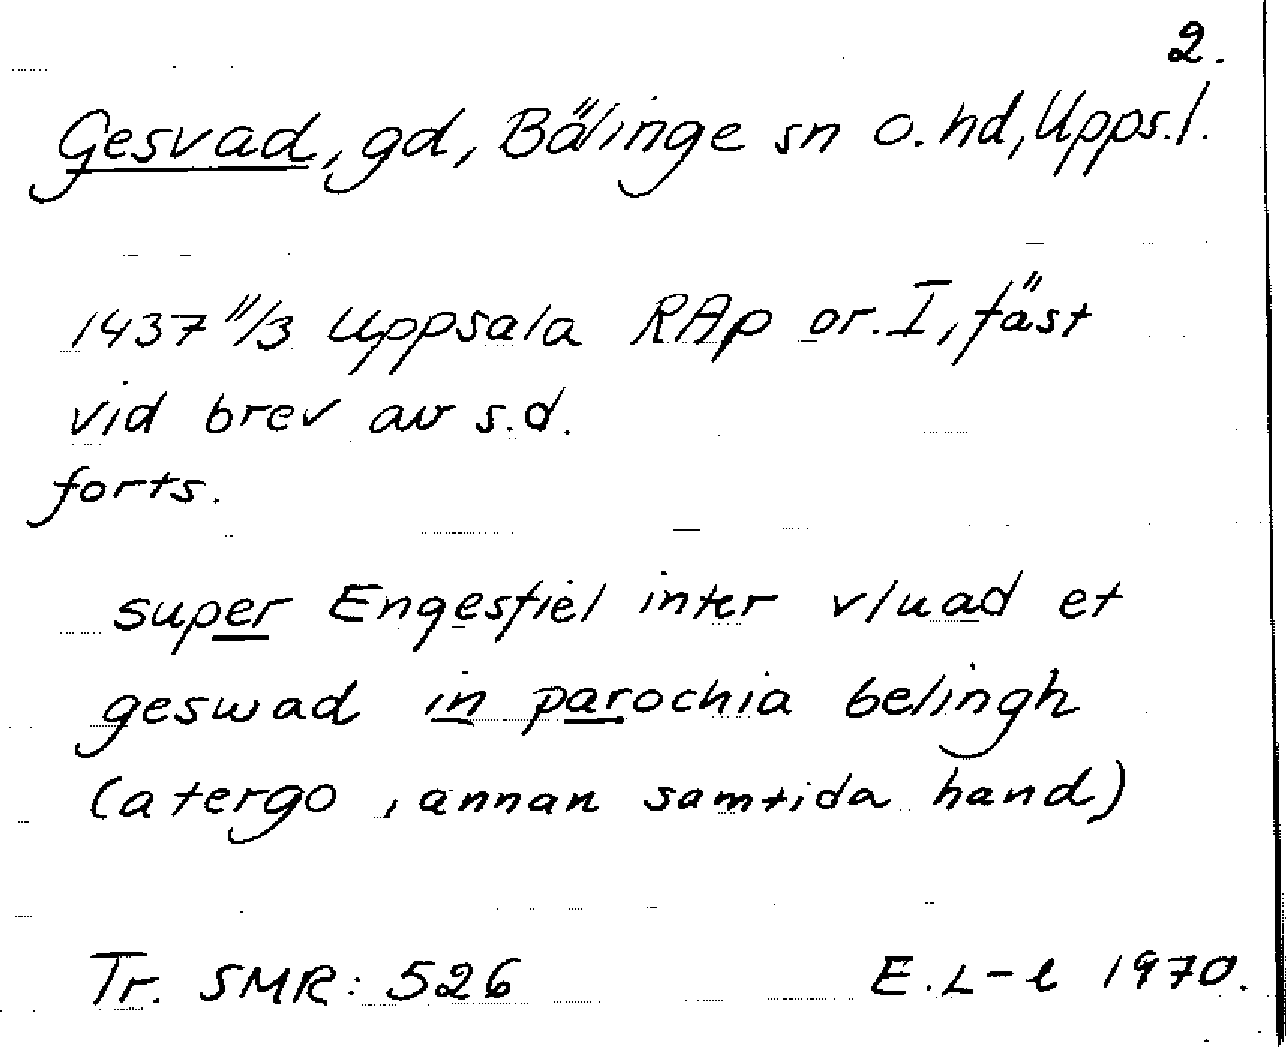 2.
Gesvad, gd, Bälinge sn o. hd, Upps. l.
1437 11/3 Uppsala RAp or. I, fäst
vid brev av s.d.
forts.
super Engesfiel inter vluad et
geswad in parochia belingh
(a tergo, annan samtida hand)
Tr. SMR: 526 E. L-l 1970.